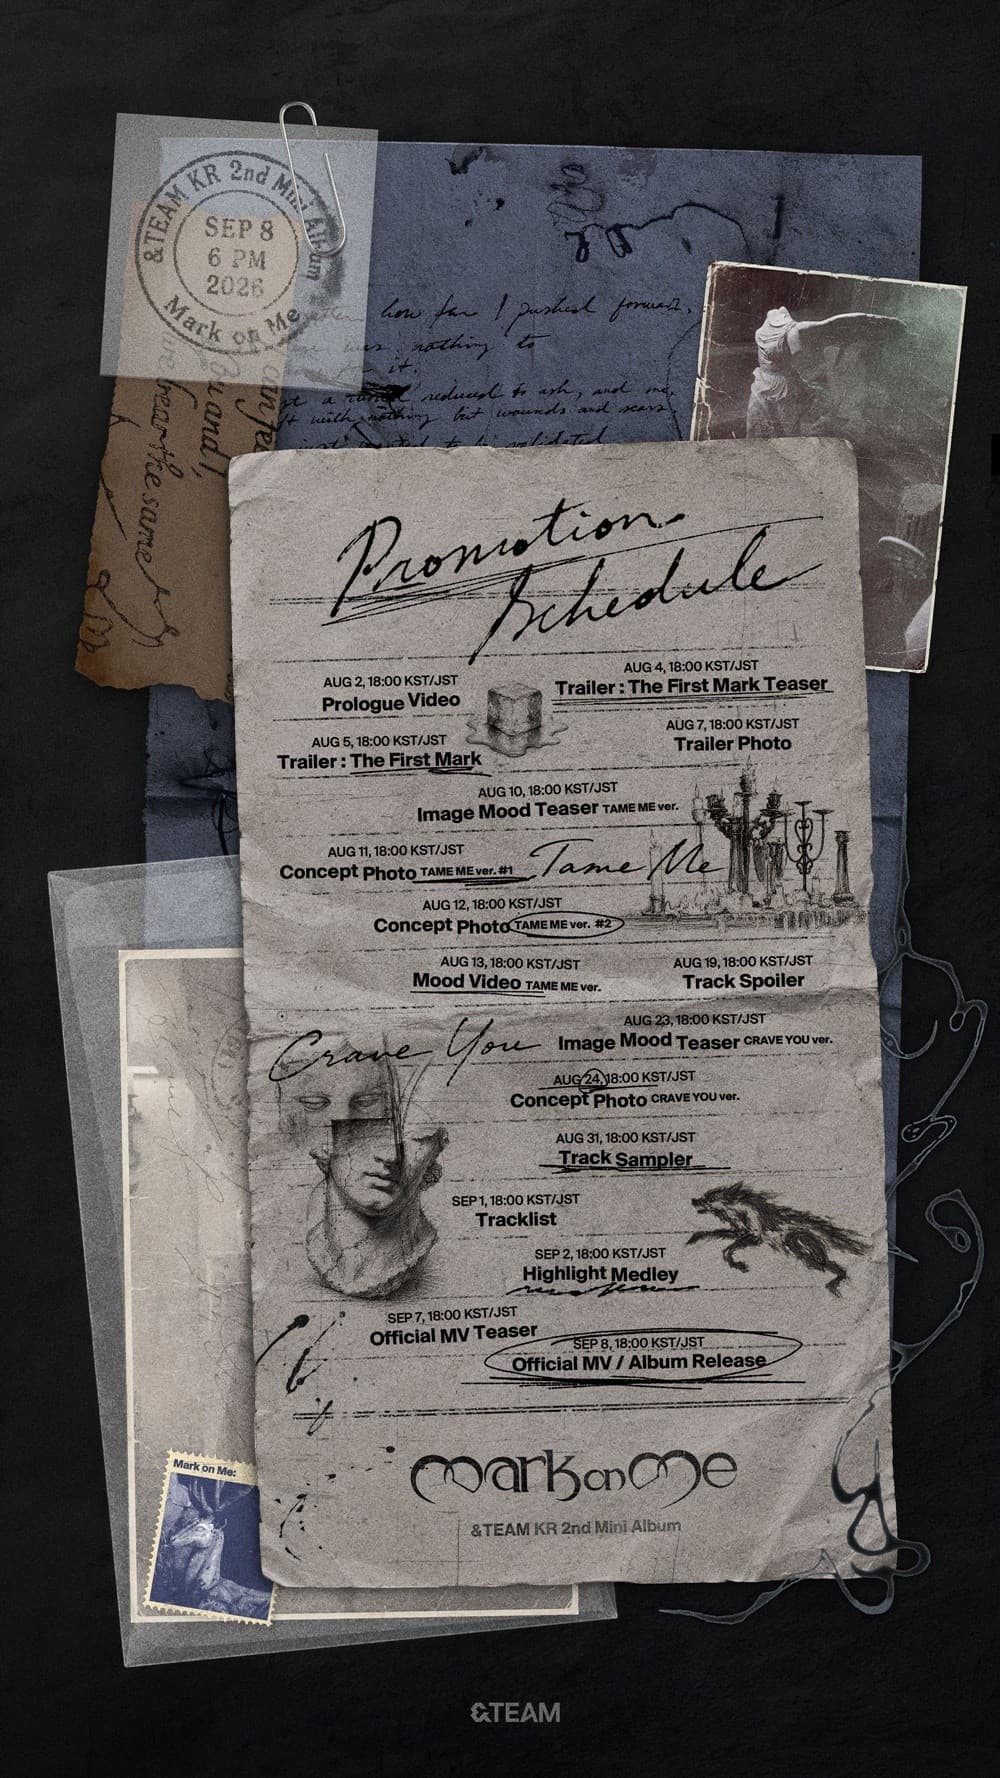 &TEAM KR 2nd Mini Album
SEP 8
6 PM
2026
Mark on Me
how far I pushed forward,
was nothing to
for it.
reduced to ash, and me,
with nothing but wounds and scars.
you and I,
the same
Promotion
Schedule
AUG 2, 18:00 KST/JST
Prologue Video
AUG 4, 18:00 KST/JST
Trailer : The First Mark Teaser
AUG 5, 18:00 KST/JST
Trailer : The First Mark
AUG 7, 18:00 KST/JST
Trailer Photo
AUG 10, 18:00 KST/JST
Image Mood Teaser TAME ME ver.
AUG 11, 18:00 KST/JST
Concept Photo TAME ME ver. #1
Tame Me
AUG 12, 18:00 KST/JST
Concept Photo TAME ME ver. #2
AUG 13, 18:00 KST/JST
Mood Video TAME ME ver.
AUG 19, 18:00 KST/JST
Track Spoiler
Crave You
AUG 23, 18:00 KST/JST
Image Mood Teaser CRAVE YOU ver.
AUG 24, 18:00 KST/JST
Concept Photo CRAVE YOU ver.
AUG 31, 18:00 KST/JST
Track Sampler
SEP 1, 18:00 KST/JST
Tracklist
SEP 2, 18:00 KST/JST
Highlight Medley
SEP 7, 18:00 KST/JST
Official MV Teaser
SEP 8, 18:00 KST/JST
Official MV / Album Release
Mark on Me
&TEAM KR 2nd Mini Album
Mark on Me:
&TEAM